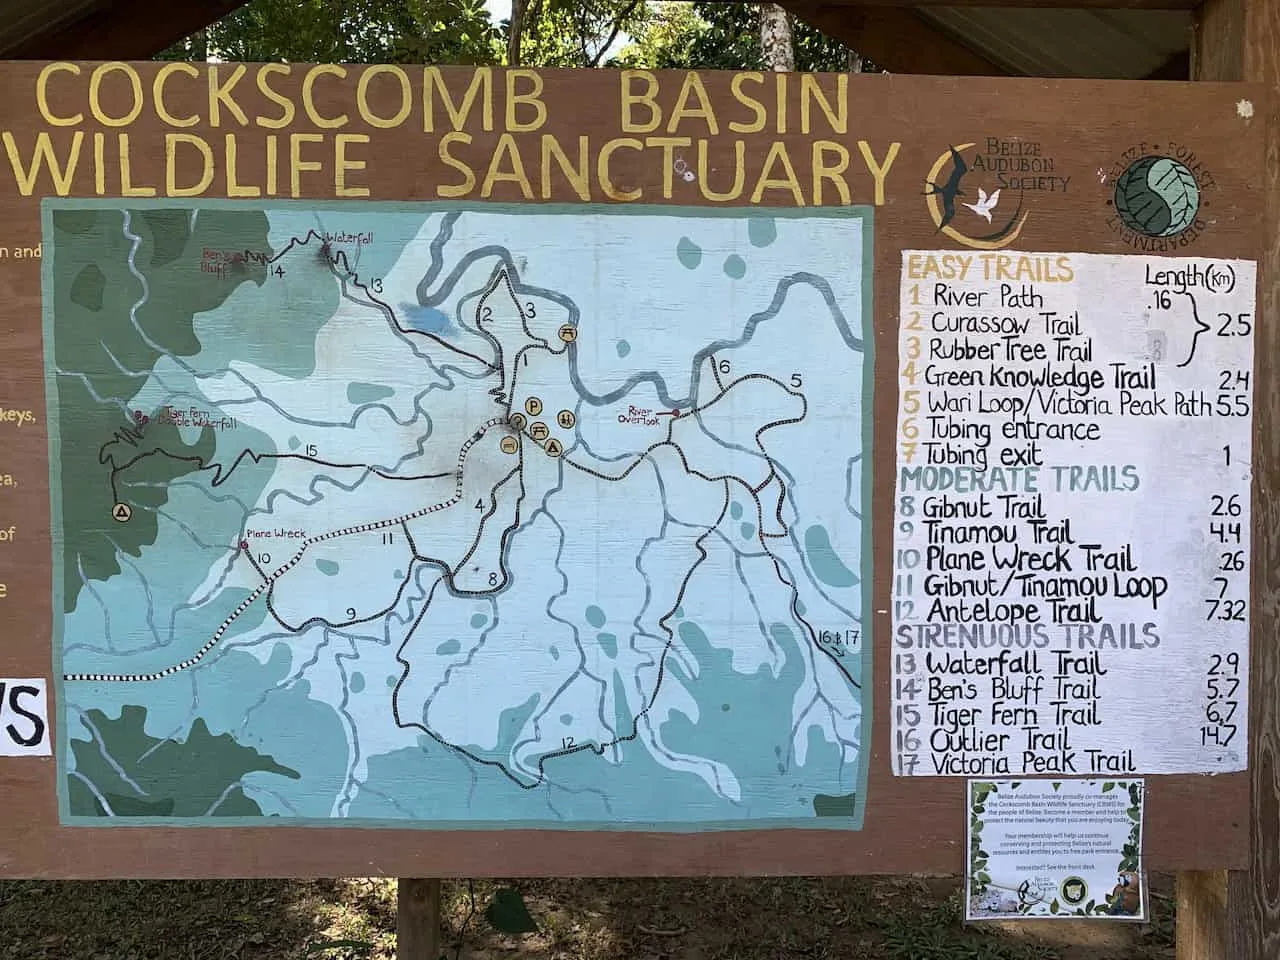 COCKSCOMB BASIN
WILDLIFE SANCTUARY
BELIZE
AUDUBON
SOCIETY
BELIZE • FOREST • DEPARTMENT
n and
keys,
ea,
of
e
WS
Ben's
Bluff
14
Waterfall
13
2
3
1
P
6
5
River
Overlook
Tiger Fern
Double Waterfall
15
4
Plane Wreck
10
11
8
9
12
16 & 17
EASY TRAILS Length (Km)
1 River Path .16
2 Curassow Trail 2.5
3 Rubber Tree Trail
4 Green Knowledge Trail 2.4
5 Wari Loop/Victoria Peak Path 5.5
6 Tubing entrance
7 Tubing exit 1
MODERATE TRAILS
8 Gibnut Trail 2.6
9 Tinamou Trail 4.4
10 Plane Wreck Trail .26
11 Gibnut/Tinamou Loop 7
12 Antelope Trail 7.32
STRENUOUS TRAILS
13 Waterfall Trail 2.9
14 Ben's Bluff Trail 5.7
15 Tiger Fern Trail 6,7
16 Outlier Trail 14.7
17 Victoria Peak Trail
Belize Audubon Society proudly co-manages
the Cockscomb Basin Wildlife Sanctuary (CBWS) for
the people of Belize. Become a member and help to
protect the natural beauty that you are enjoying today.
Your membership will help us continue
conserving and protecting Belize's natural
resources and entitles you to free park entrance.
Interested? See the front desk.
BELIZE
AUDUBON
SOCIETY